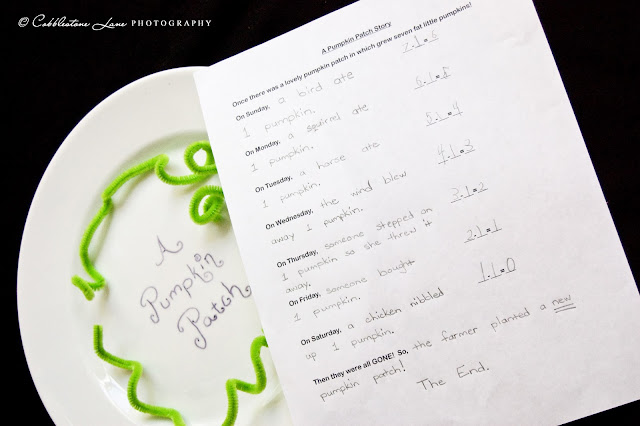 © Cobblestone Lane PHOTOGRAPHY
A Pumpkin Patch Story
Once there was a lovely pumpkin patch in which grew seven fat little pumpkins!
7-1=6
On Sunday, a bird ate
1 pumpkin.
6-1=5
On Monday, a squirrel ate
1 pumpkin.
5-1=4
On Tuesday, a horse ate
1 pumpkin.
4-1=3
On Wednesday, the wind blew
away 1 pumpkin.
3-1=2
On Thursday, someone stepped on
1 pumpkin so she threw it
away.
2-1=1
On Friday, someone bought
1 pumpkin.
1-1=0
On Saturday, a chicken nibbled
up 1 pumpkin.
Then they were all GONE! So, the farmer planted a new
pumpkin patch!
The End.
A
Pumpkin
Patch